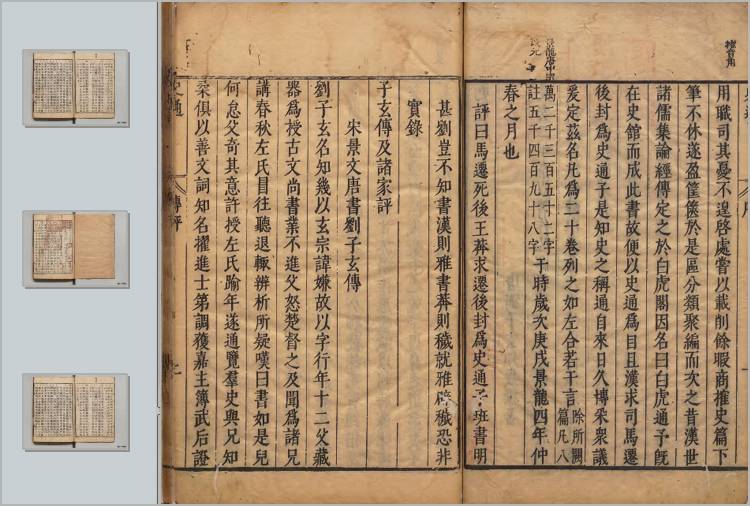 用職司其憂不遑啓處嘗以載削餘暇商搉史篇下
筆不休遂盈筐篋於是區分類聚編而次之昔漢世
諸儒集論經傳定之於白虎閣因名曰白虎通予旣
在史館而成此書故便以史通爲目且漢求司馬遷
後封爲史通子是知史之稱通自來日久博采衆議
爰定茲名凡爲二十卷列之如左合若干言除所闕篇凡八
萬二千三百五十二字
註五千四百九十八字于時歲次庚戌景龍四年仲
春之月也
評曰馬遷死後王莽求遷後封爲史通子班書明
甚劉豈不知書漢則雅書莽則穢就雅辟穢恐非
實錄
子玄傳及諸家評
宋景文唐書劉子玄傳
劉子玄名知幾以玄宗諱嫌故以字行年十二父藏
器爲授古文尚書業不進父怒楚督之及聞爲諸兄
講春秋左氏冐往聽退輒辨析所疑嘆曰書如是兒
何怠父奇其意許授左氏踰年遂通覽羣史與兄知
柔俱以善文詞知名擢進士第調獲嘉主簿武后證
史通
傳評